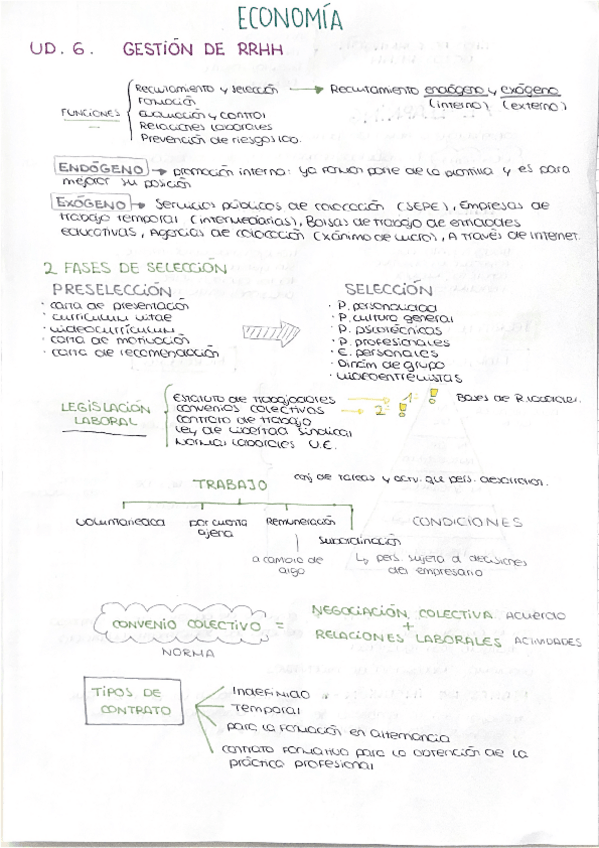 ECONOMÍA
UD. 6. GESTIÓN DE RRHH
FUNCIONES
Reclutamiento y selección → Reclutamiento endógeno y exógeno
(interno) (externo)
Formación
Evaluación y control
Relaciones laborales
Prevención de riesgos lab.
ENDÓGENO → promoción interna: ya forman parte de la plantilla y es para
mejorar su posición
EXÓGENO → Servicios públicos de colocación (SEPE), Empresas de
trabajo temporal (intermediarias), Bolsas de trabajo de entidades
educativas, Agencias de colocación (xánimo de lucro), A través de internet.
2 FASES DE SELECCIÓN
PRESELECCIÓN
· carta de presentación
· curriculum vitae
· videocurriculum
· carta de motivación
· carta de recomendación
SELECCIÓN
· P. personalidad
· P. cultura general
· P. psicotécnicas
· P. profesionales
· E. personales
· Dinám de grupo
· videoentrevistas
LEGISLACIÓN
LABORAL
Estatuto de trabajadores → 1º !
convenios colectivos → 2º !
Bases de R. laborales.
contrato de trabajo
Ley de libertad sindical
Normas laborales U.E.
TRABAJO
conj de tareas y activ. que pers. desarrollan.
voluntariedad
por cuenta
ajena
Remuneración
a cambio de
algo
subordinación
CONDICIONES
↳ pers. sujeta a decisiones
del empresario
CONVENIO COLECTIVO =
NORMA
NEGOCIACIÓN COLECTIVA acuerdo
+
RELACIONES LABORALES ACTIVIDADES
TIPOS DE
CONTRATO
Indefinido
Temporal
para la formación en alternancia
contrato formativo para la obtención de la
práctica profesional